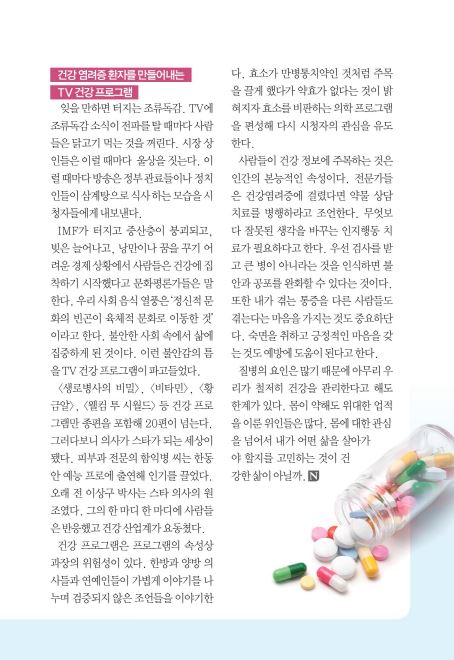 건강 염려증 환자를 만들어내는
TV 건강 프로그램
잊을 만하면 터지는 조류독감. TV에
조류독감 소식이 전파를 탈 때마다 사람
들은 닭고기 먹는 것을 꺼린다. 시장 상
인들은 이럴 때마다 울상을 짓는다. 이
럴 때마다 방송은 정부 관료들이나 정치
인들이 삼계탕으로 식사 하는 모습을 시
청자들에게 내보낸다.
IMF가 터지고 중산층이 붕괴되고,
빚은 늘어나고, 낭만이나 꿈을 꾸기 어
려운 경제 상황에서 사람들은 건강에 집
착하기 시작했다고 문화평론가들은 말
한다. 우리 사회 음식 열풍은 '정신적 문
화의 빈곤이 육체적 문화로 이동한 것'
이라고 한다. 불안한 사회 속에서 삶에
집중하게 된 것이다. 이런 불안감의 틈
을 TV 건강 프로그램이 파고들었다.
〈생로병사의 비밀〉, 〈비타민〉, 〈황
금알〉, 〈웰컴 투 시월드〉 등 건강 프로
그램만 종편을 포함해 20편이 넘는다.
그러다보니 의사가 스타가 되는 세상이
됐다. 피부과 전문의 함익병 씨는 한동
안 예능 프로에 출연해 인기를 끌었다.
오래 전 이상구 박사는 스타 의사의 원
조였다. 그의 한 마디 한 마디에 사람들
은 반응했고 건강 산업계가 요동쳤다.
건강 프로그램은 프로그램의 속성상
과장의 위험성이 있다. 한방과 양방 의
사들과 연예인들이 가볍게 이야기를 나
누며 검증되지 않은 조언들을 이야기한
다. 효소가 만병통치약인 것처럼 주목
을 끌게 했다가 약효가 없다는 것이 밝
혀지자 효소를 비판하는 의학 프로그램
을 편성해 다시 시청자의 관심을 유도
한다.
사람들이 건강 정보에 주목하는 것은
인간의 본능적인 속성이다. 전문가들
은 건강염려증에 걸렸다면 약물 상담
치료를 병행하라고 조언한다. 무엇보
다 잘못된 생각을 바꾸는 인지행동 치
료가 필요하다고 한다. 우선 검사를 받
고 큰 병이 아니라는 것을 인식하면 불
안과 공포를 완화할 수 있다는 것이다.
또한 내가 겪는 통증을 다른 사람들도
겪는다는 마음을 가지는 것도 중요하단
다. 숙면을 취하고 긍정적인 마음을 갖
는 것도 예방에 도움이 된다고 한다.
질병의 요인은 많기 때문에 아무리 우
리가 철저히 건강을 관리한다고 해도
한계가 있다. 몸이 약해도 위대한 업적
을 이룬 위인들은 많다. 몸에 대한 관심
을 넘어서 내가 어떤 삶을 살아가
야 할지를 고민하는 것이 건
강한 삶이 아닐까. N